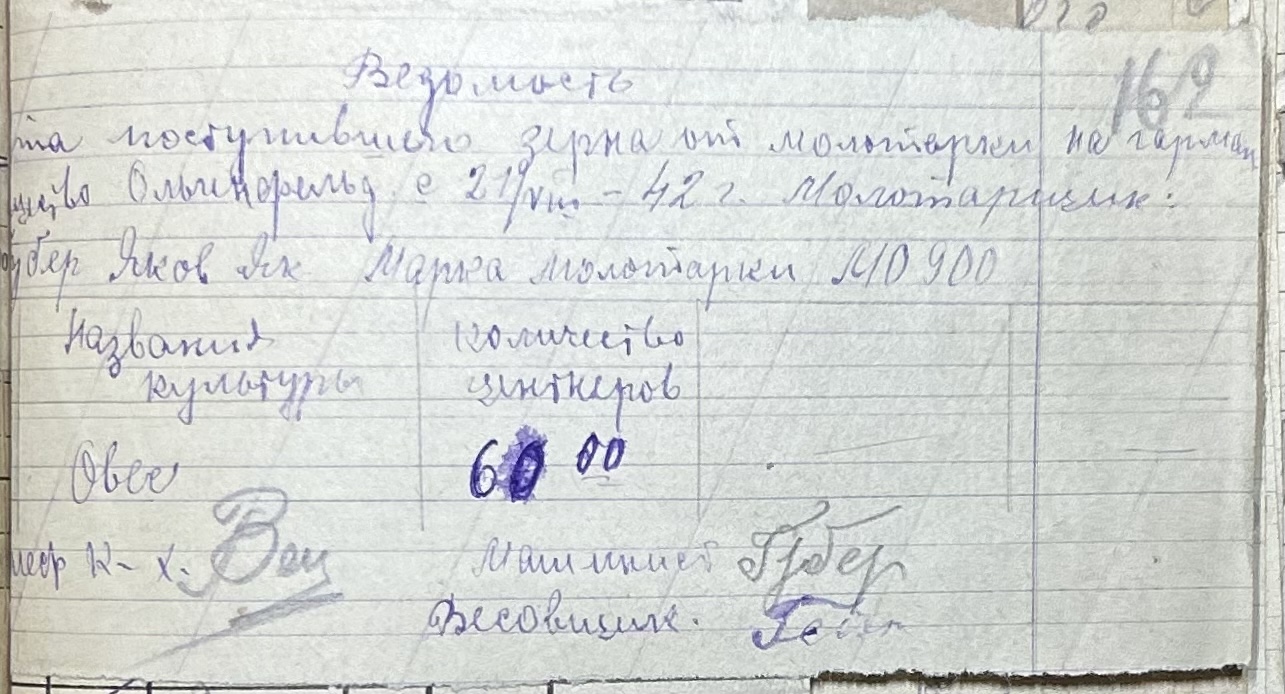 162
Ведомость
та поступившего зерна от молотарки на гарман
щество Ольгинфельд с 21го/VIII – 42 г. Молотарщик:
убер Яков Як Марка молотарки МО 900
Названия культуры
Количество центнеров
Овес
60 00
шеф К-х.
Машинист Губер
Весовщик.